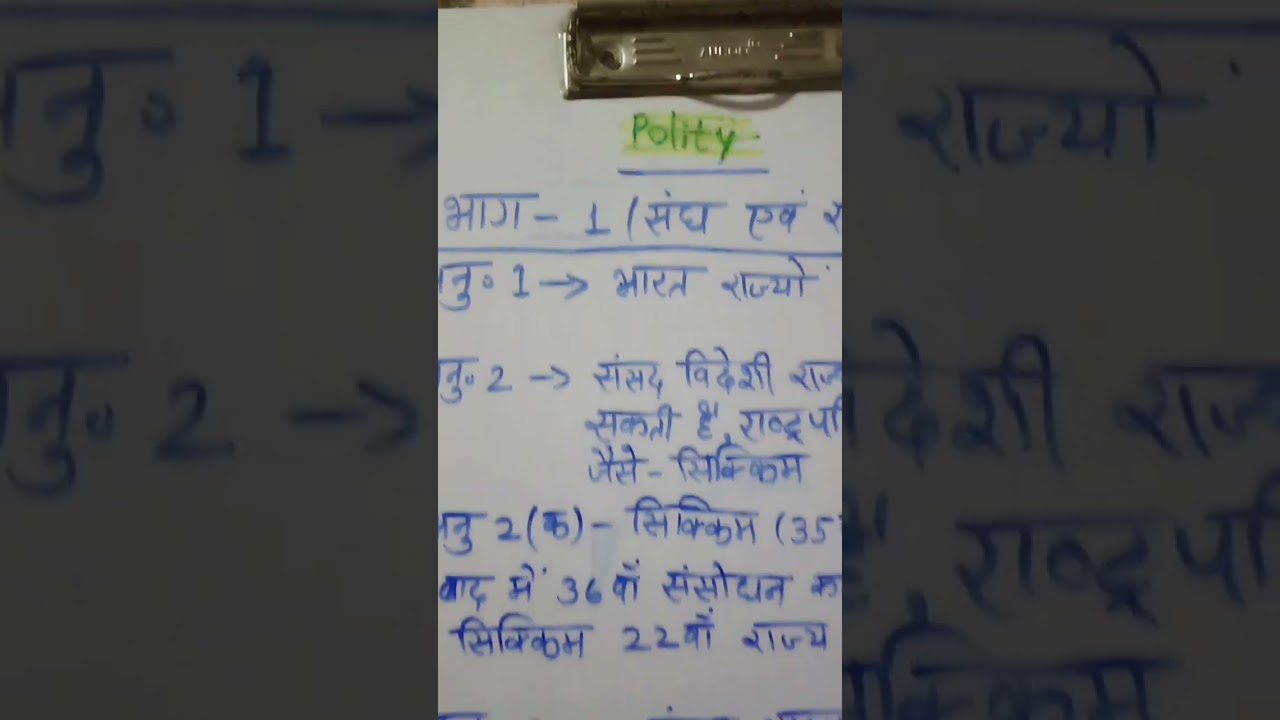 Polity
भाग - 1 (संघ एवं
नु॰ 1 → भारत राज्यों
नु॰ 2 → संसद विदेशी राज
सकती है, राष्ट्रपति
जैसे - सिक्किम
नु 2 (क) - सिक्किम (35
बाद में 36वाँ संसोधन
सिक्किम 22वाँ राज्य